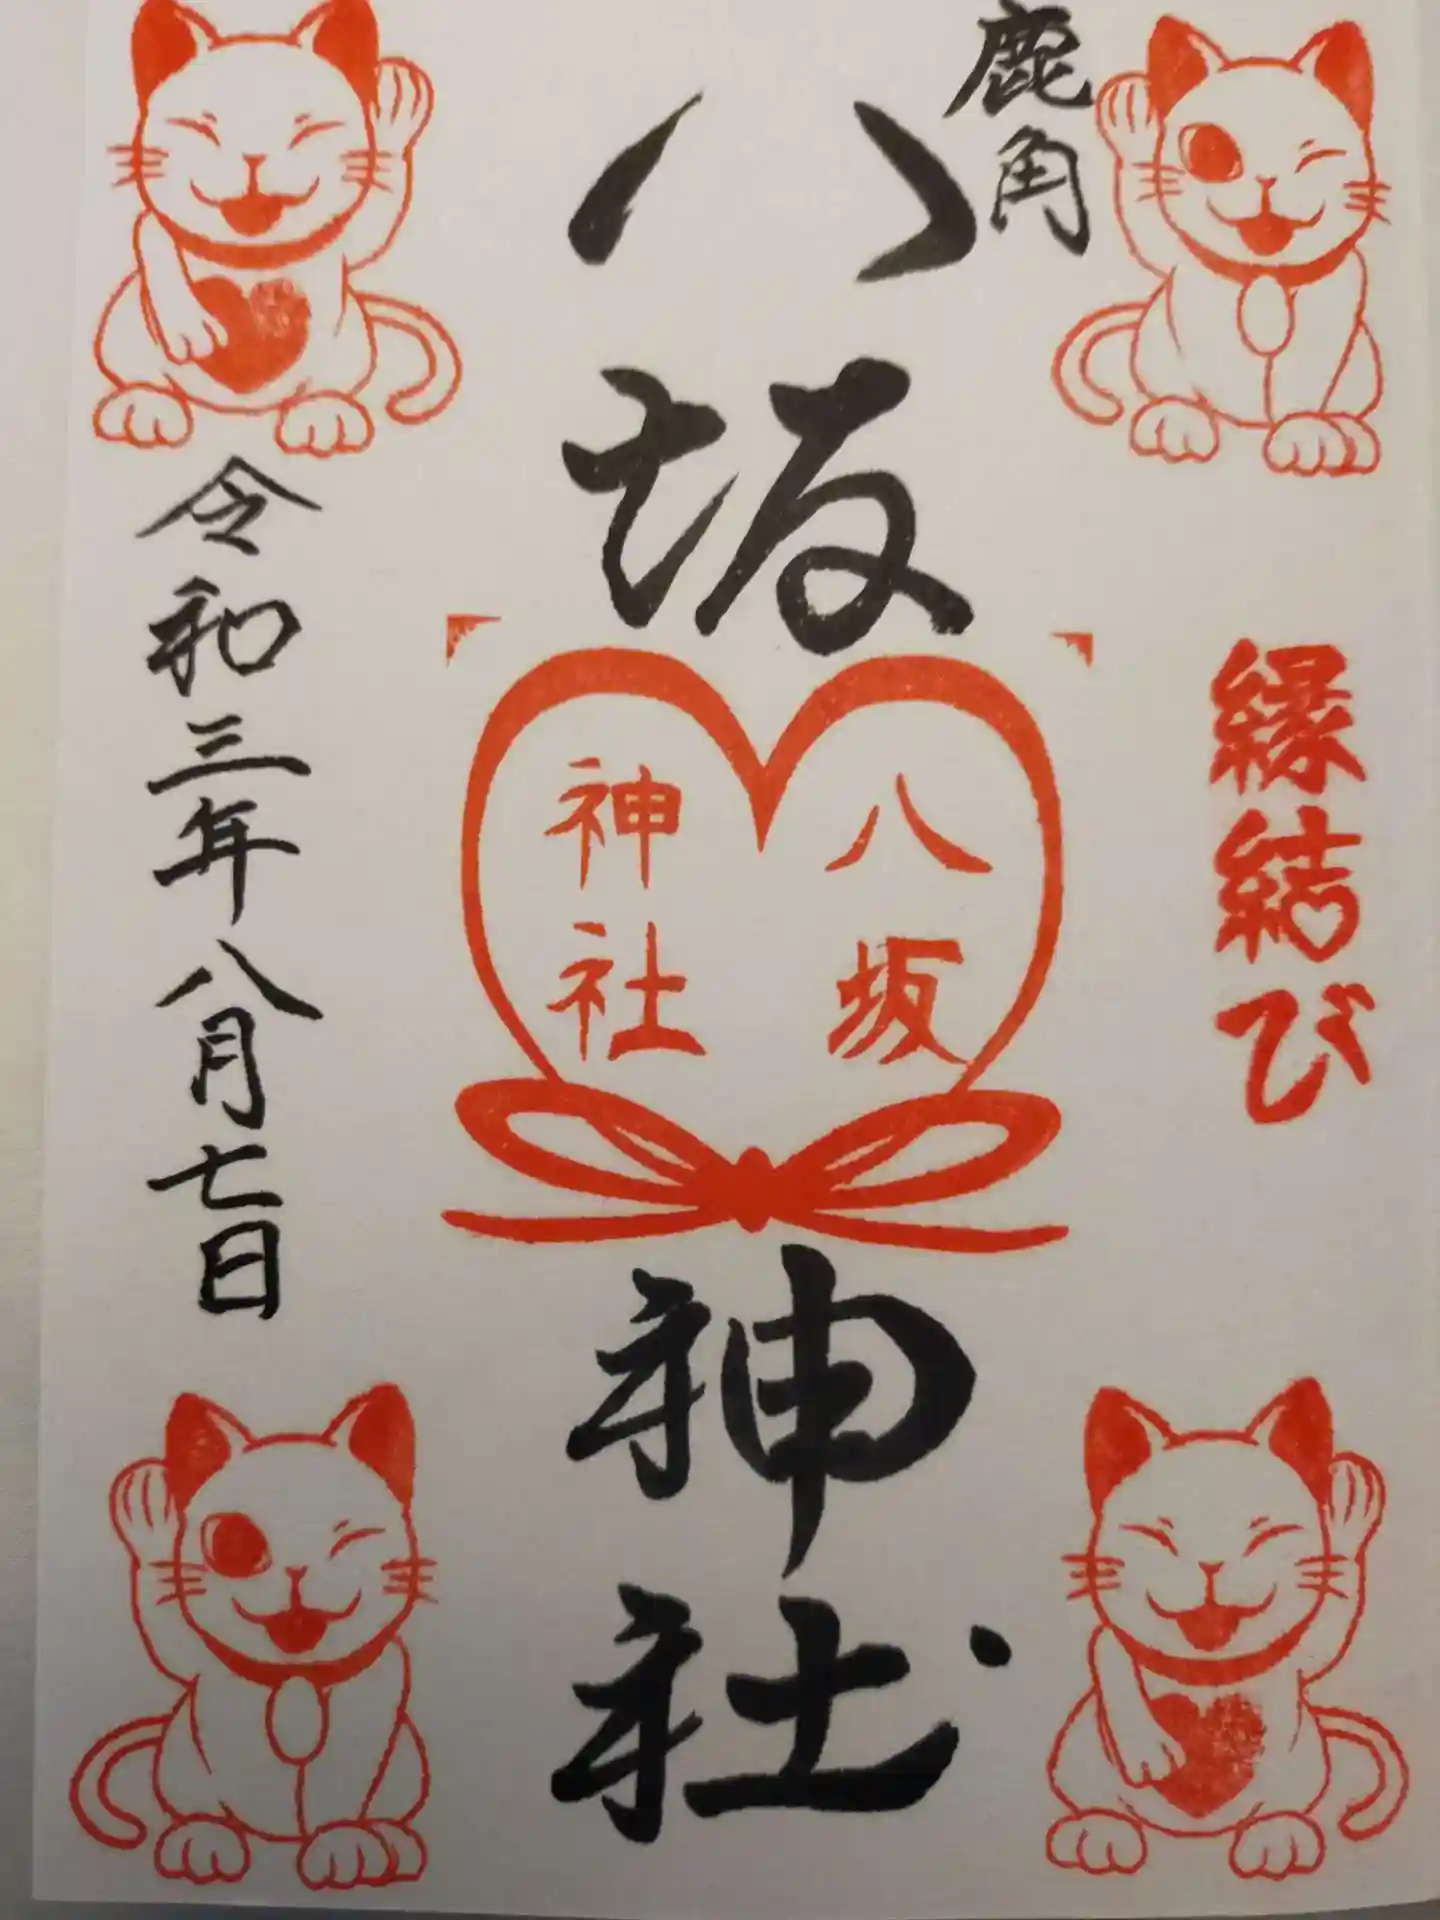 鹿角
縁結び
八坂神社
八坂
神社
令和三年八月七日